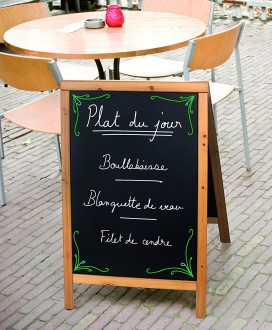 Plat du jour
Boullabaisse
Blanquette de veau
Filet de cendre